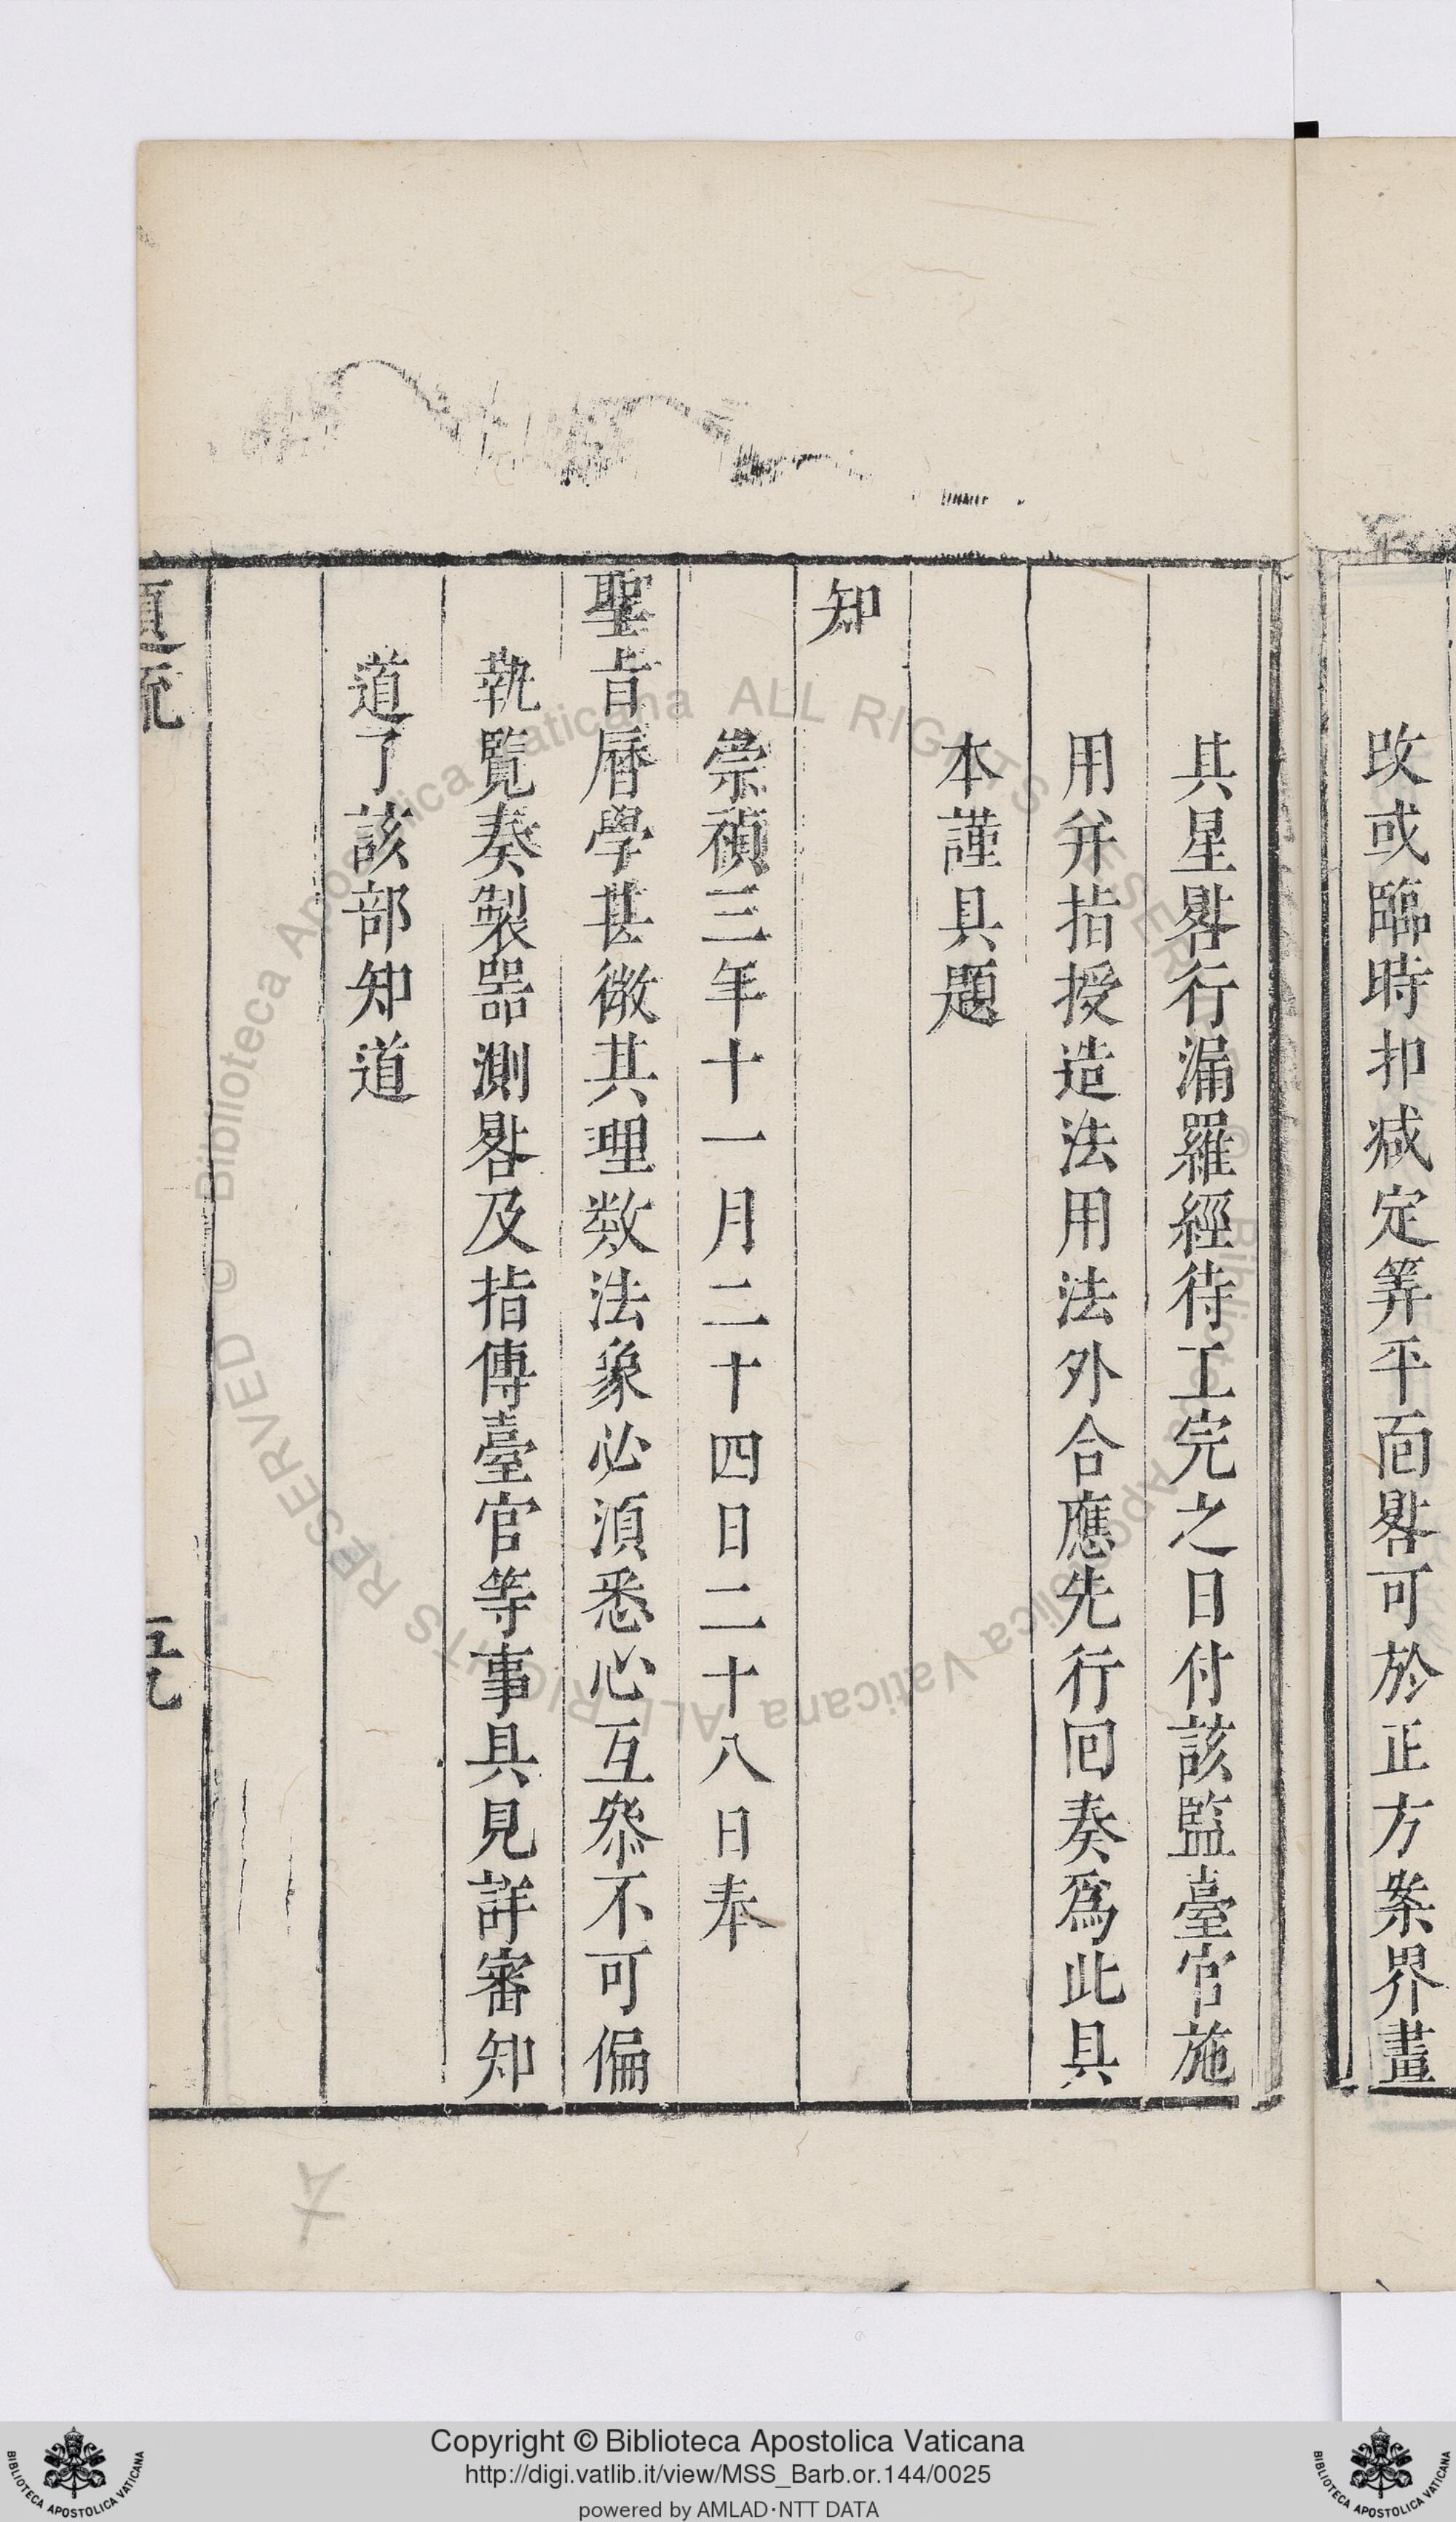 改或臨時扣减定筭平面晷可於正方案界畫
其星晷行漏羅經待工完之日付該監臺官施
用并指授造法用法外合應先行回奏爲此具
本謹具題
知
崇禎三年十一月二十四日二十八日奉
聖旨曆學甚微其理数法象必須悉心互叅不可偏
執覽奏製器測晷及指傳臺官等事具見詳審知
道了該部知道
Biblioteca Apostolica Vaticana ALL RIGHTS RESERVED © Biblioteca Apostolica Vaticana ALL RIGHTS RESERVED ©
Copyright © Biblioteca Apostolica Vaticana
http://digi.vatlib.it/view/MSS_Barb.or.144/0025
powered by AMLAD·NTT DATA
BIBLIOTECA APOSTOLICA VATICANA
BIBLIOTECA APOSTOLICA VATICANA